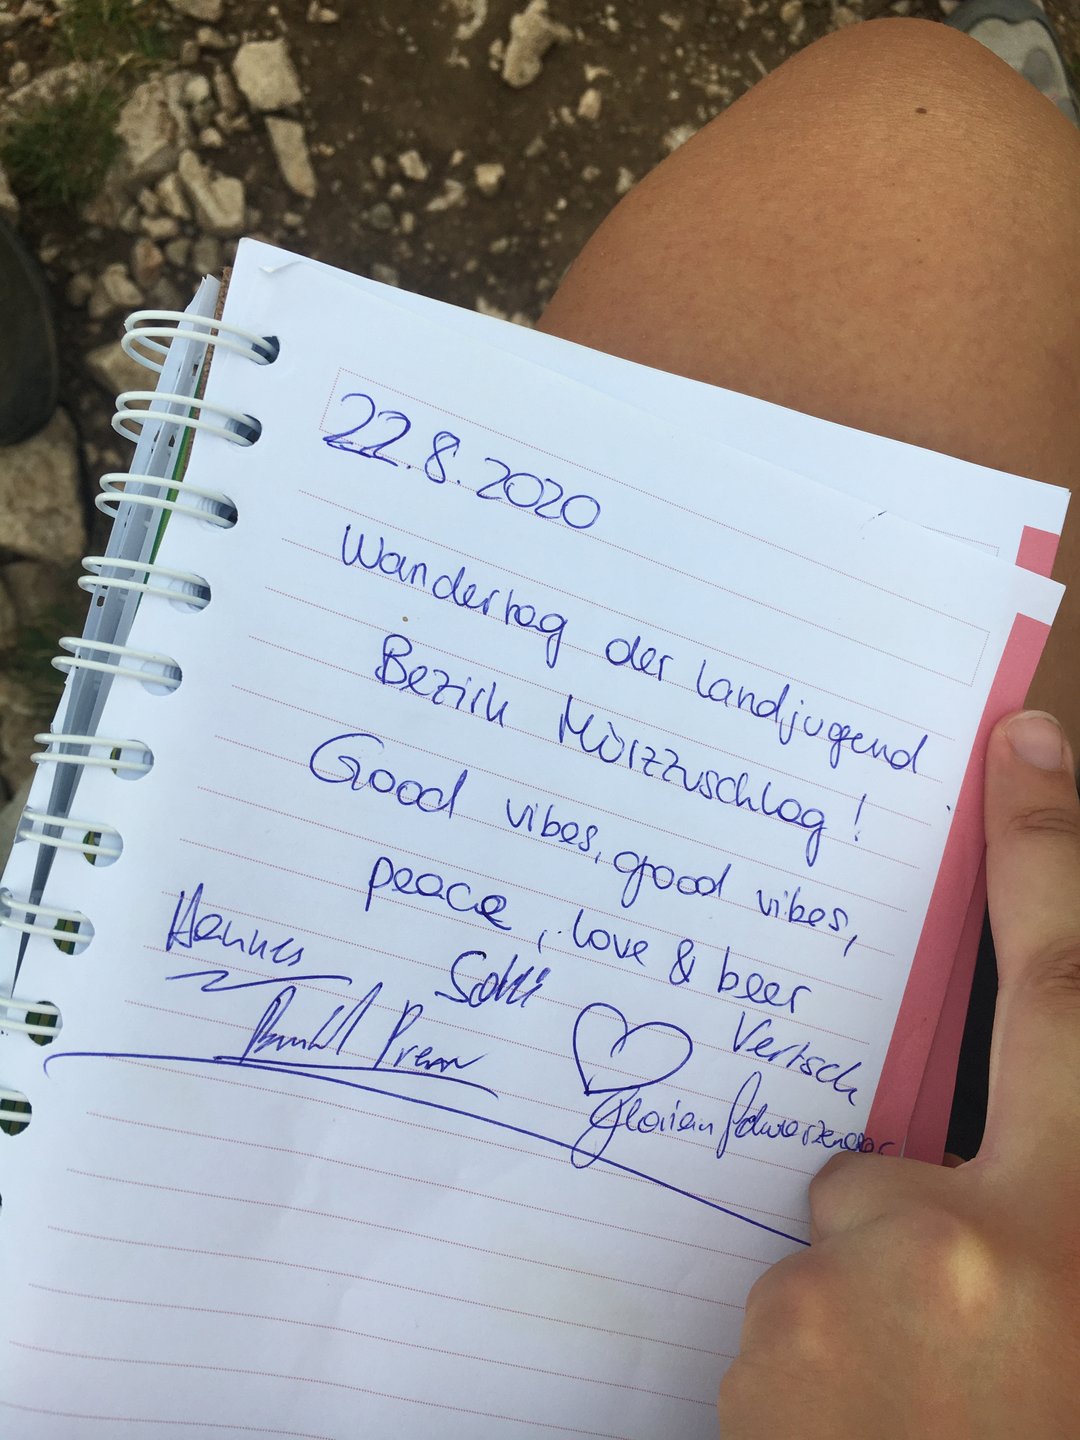 22.8.2020
Wandertag der Landjugend
Bezirk Mürzzuschlag!
Good vibes, good vibes,
peace, love & beer
Hannes
Vertsch
Florian